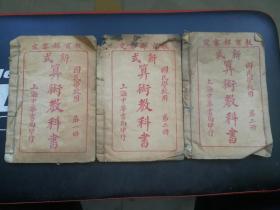 教育部審定
新式
算術教科書
國民學校用 第一冊
上海中華書局印行
教育部審定
新式
算術教科書
國民學校用 第二冊
上海中華書局印行
教育部審定
新式
算術教科書
國民學校用 第二冊
上海中華書局印行